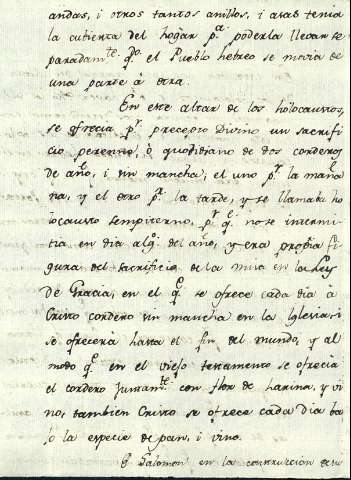 andas, i otros tantos anillos, i asas tenia
la cubierta del hogar pª. poderla llevar se
paradamte. qdo. el Pueblo hebreo se movia de
una parte á otra.
En este altar de los holocaustos,
se ofrecia pr. precepto Divino un sacrifi
cio perenne, ò quotidiano de dos corderos
de año, i sin mancha; el uno pr. la maña
na, y el otro pr. la tarde, y se llamaba ho
locausto sempiterno, pr. qe. no se intermi
tia en dia algo. del año, y era propia fi
gura del sacrificio de la misa en la Ley
de Gracia, en el qe. se ofrece cada dia á
Cristo cordero sin mancha en la Iglesia, i
se ofrecera hasta el fin del mundo, y al
modo qe. en el viejo testamento se ofrecia
el cordero juntamte. con flor de harina, y vi
no, tambien Cristo se ofrece cada dia ba
jo la especie de pan, i vino.
Salomon en la construccion de su